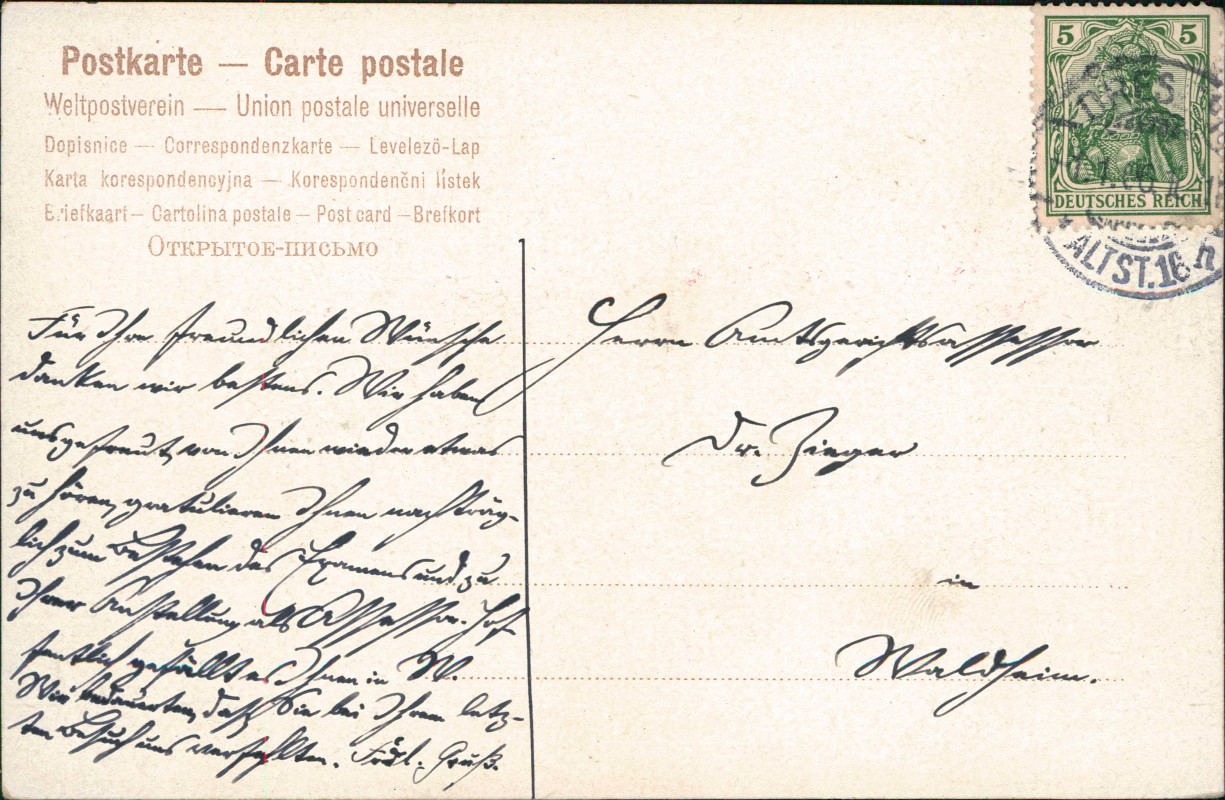 Postkarte — Carte postale
Weltpostverein — Union postale universelle
Dopisnice — Correspondenzkarte — Levelezö-Lap
Karta korespondencyjna — Korespondenční lístek
Briefkaart — Cartolina postale — Post card — Brefkort
Открытое-письмо
5 5
DRES
DEUTSCHES REICH
ALTST. 16 n
Für Ihre freundlichen Wünsche
danken wir bestens. Wir haben
uns gefreut, von Ihnen wieder etwas
zu hören, gratulieren Ihnen nachträg-
lich zum Bestehen des Examens und zu
Ihrer Anstellung als Assessor. Hof-
fentlich gefällt es Ihnen in W.
Wir bedauerten, daß Sie bei Ihrem letz-
ten Besuch uns verfehlten. Frdl. Gruß.
Herrn Amtsgerichtsassessor
Dr. Zieger
in
Waldheim.